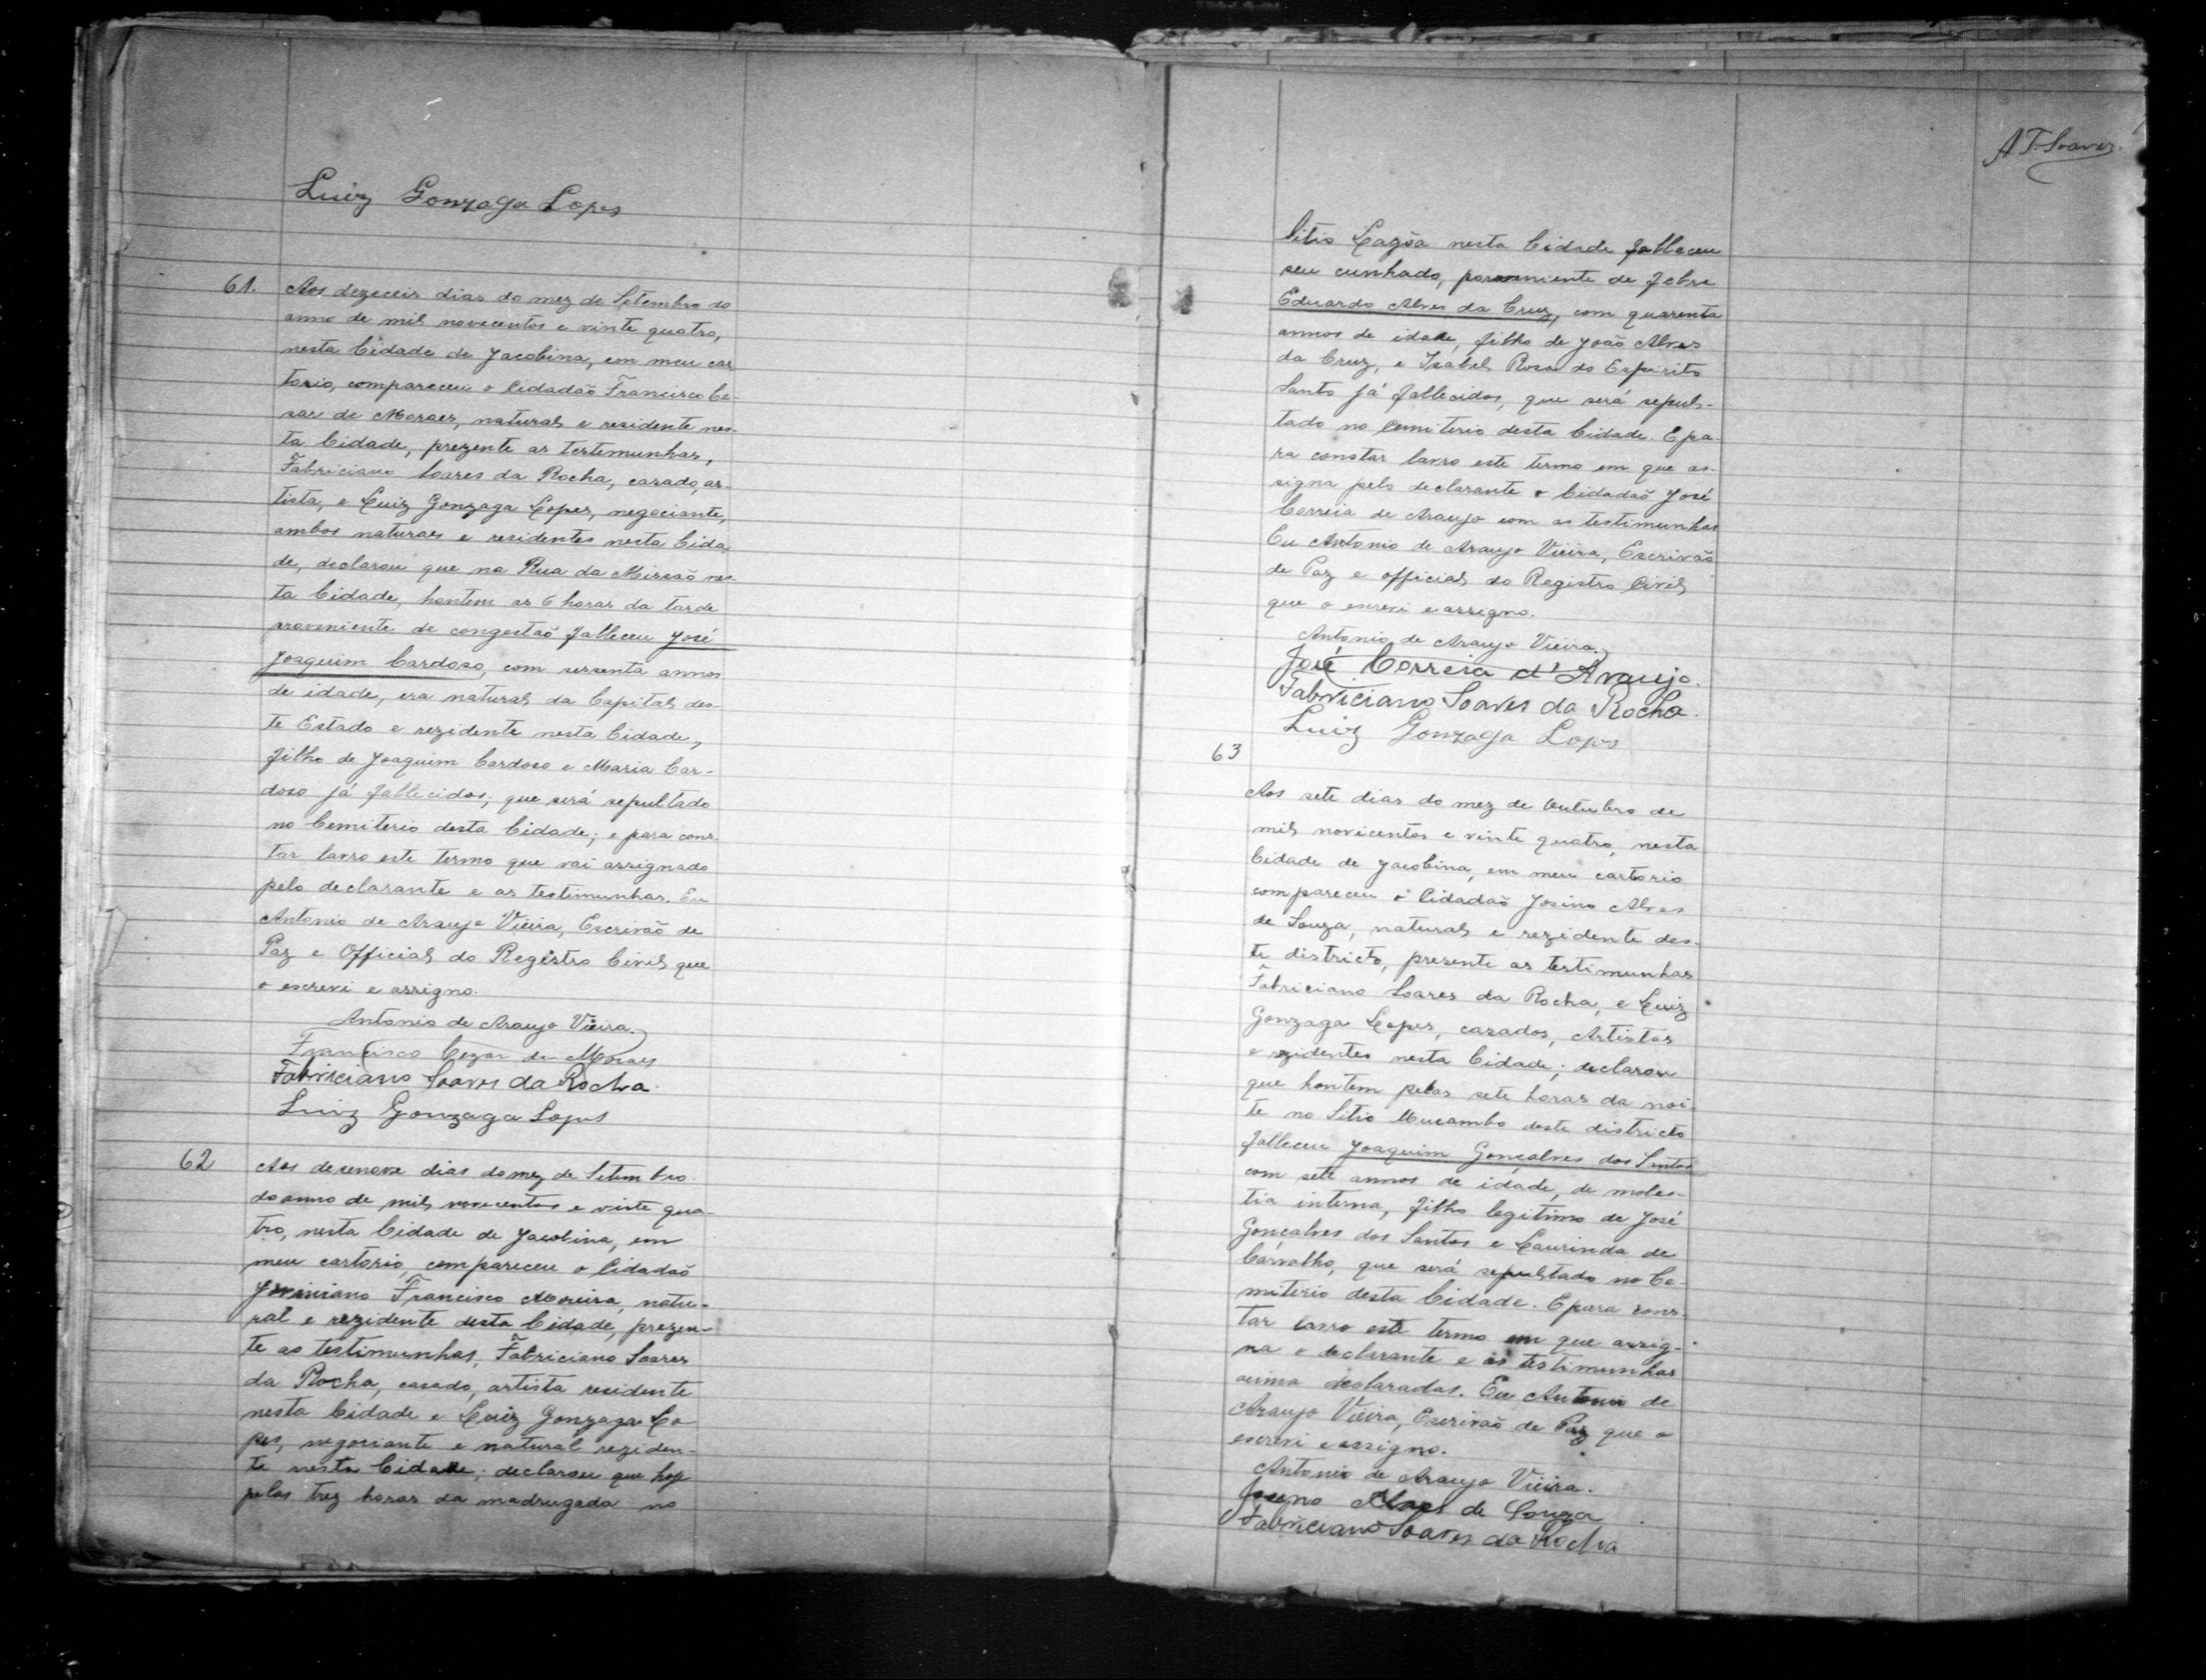 Luiz Gonzaga Lopes
61. Aos dezeceis dias do mez de Setembro do
anno de mil novecentos e vinte quatro,
nesta Cidade de Jacobina, em meu car
torio, compareceu o Cidadão Francisco Ce-
sar de Moraes, natural e residente nes-
ta Cidade, prezente as testemunhas,
Fabriciano Soares da Rocha, casado, ar-
tista, e Luiz Gonzaga Lopes, negociante,
ambos naturaes e residentes nesta Cida
de, declarou que na Rua da Missão nes-
ta Cidade, hontem as 6 horas da tarde
proveniente de congestão falleceu José
Joaquim Cardoso, com sessenta annos
de idade, era natural da Capital des-
te Estado e rezidente nesta Cidade,
filho de Joaquim Cardoso e Maria Car-
doso já fallecidos; que será sepultado
no Cemiterio desta Cidade; e para cons-
tar lavro este termo que vai assignado
pelo declarante e as testimunhas. Eu
Antonio de Araujo Vieira, Escrivão de
Paz e Official do Registro Civil que
o escrevi e assigno.
Antonio de Araujo Vieira.
Francisco Cezar de Moraes
Fabriciano Soares da Rocha
Luiz Gonzaga Lopes
62 Aos desenove dias do mez de Setembro
do anno de mil novecentos e vinte qua-
tro, nesta Cidade de Jacobina, em
meu cartorio, compareceu o Cidadão
Joviniano Francisco Moreira, natu-
ral e rezidente desta Cidade, prezen-
te as testimunhas, Fabriciano Soares
da Rocha, casado, artista residente
nesta Cidade e Luiz Gonzaga Lo
pes, negociante e natural reziden-
te nesta Cidade; declarou que hoje
pelas trez horas da madrugada no
A T. Soares.
Citio Lagôa nesta Cidade falleceu
seu cunhado, proveniente de febre
Eduardo Alves da Cruz, com quarenta
annos de idade, filho de João Alves
da Cruz, e Isabel Rosa do Espirito
Santo já fallecidos, que será sepul-
tado no Cemiterio desta Cidade. E pa-
ra constar lavro este termo em que as-
signa pelo declarante o Cidadão José
Correia de Araujo com as testimunhas
Eu Antonio de Araujo Vieira, Escrivão
de Paz e official do Registro Civil
que o escrevi e assigno.
Antonio de Araujo Vieira.
José Correia d'Araujo.
Fabriciano Soares da Rocha.
Luiz Gonzaga Lopes
63
Aos sete dias do mez de Outubro de
mil novicentos e vinte quatro, nesta
Cidade de Jacobina, em meu cartorio
compareceu o Cidadão Josino Alves
de Souza, natural e rezidente des-
te districto, presente as testimunhas
Fabriciano Soares da Rocha, e Luiz
Gonzaga Lopes, casados, Artistas
e rezidentes nesta Cidade; declarou
que hontem pelas sete horas da noi-
te no Sitio Mucambo deste districto
falleceu Joaquim Goncalves dos Santos
com sete annos de idade, de moles-
tia interna, filho legitimo de José
Gonçalves dos Santos e Laurinda de
Carvalho, que será sepultado no Ce-
miterio desta Cidade. E para cons-
tar lavro este termo em que assig-
na o declarante e as testimunhas
acima declaradas. Eu Antonio de
Araujo Vieira, Escrivão de Paz que o
escrevi e assigno.
Antonio de Araujo Vieira.
Josino Alves de Souza
Fabriciano Soares da Rocha